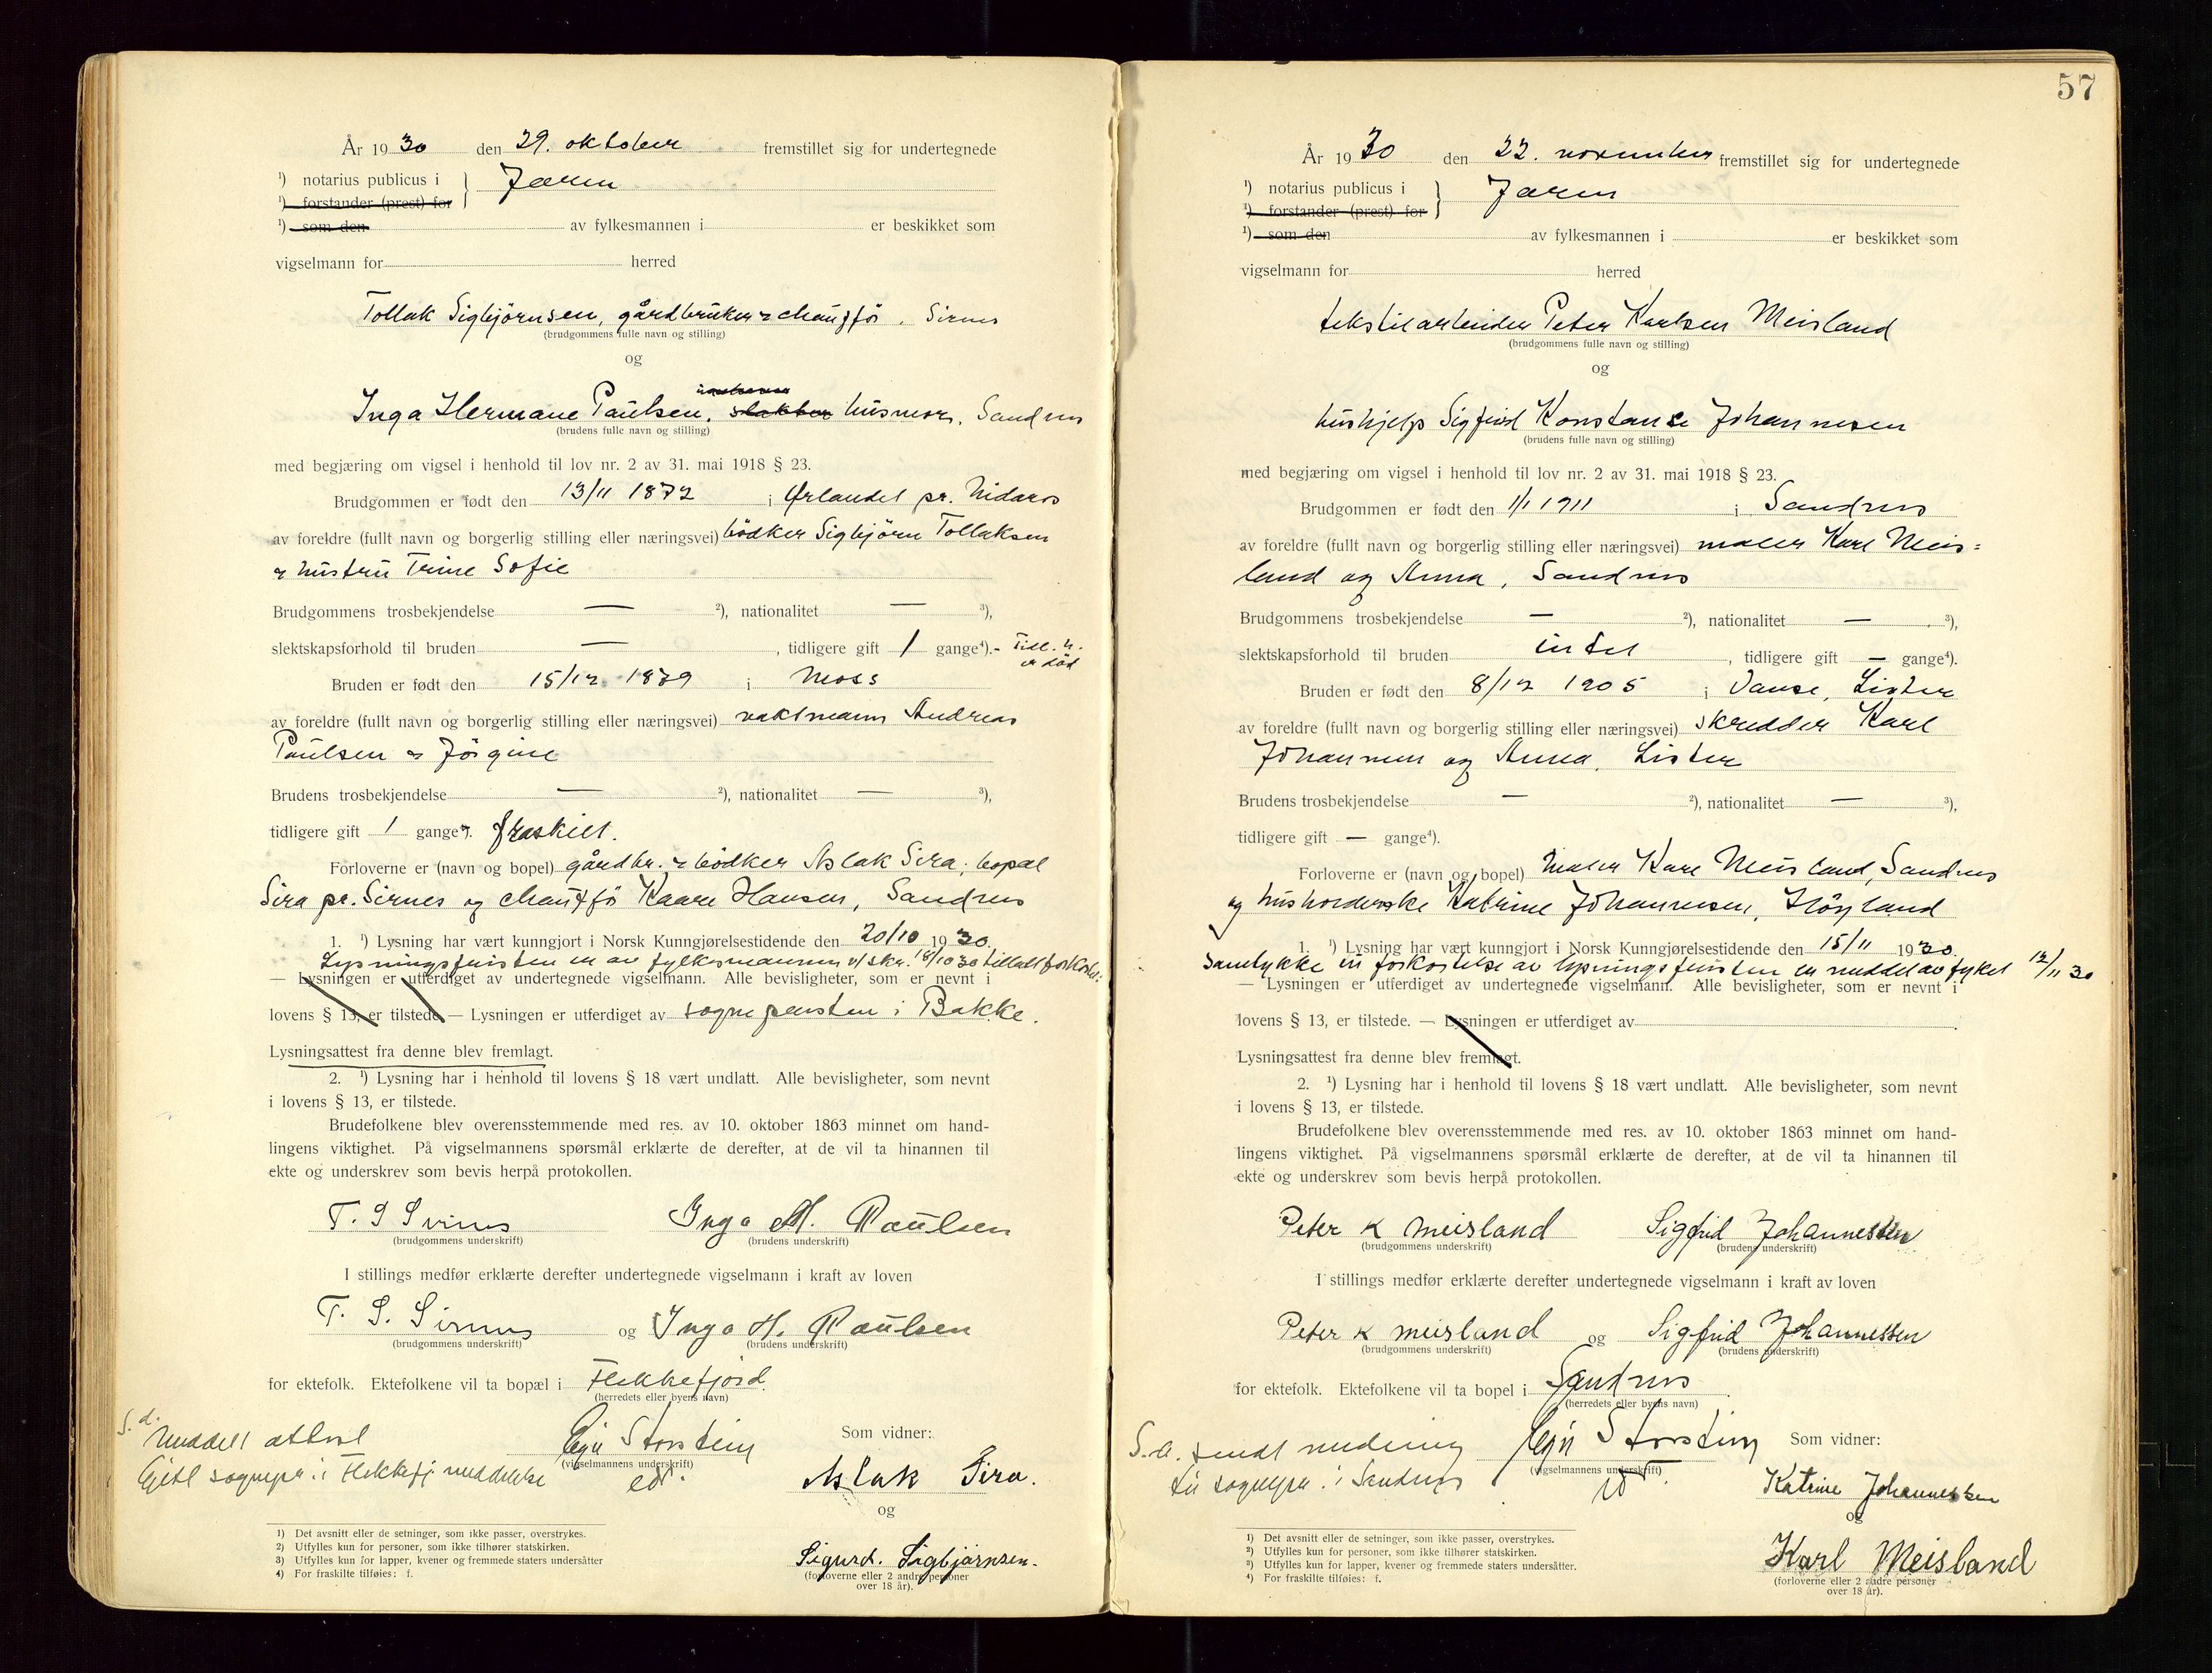 År 1930 den 29. oktober fremstillet sig for undertegnede
¹) notarius publicus i } Jæren
¹) forstander (prest) for
¹) som den av fylkesmannen i er beskikket som
vigselmann for herred
Tollak Sigbjörnsen, gårdbruker & chauffö. Sirnes
(brudgommens fulle navn og stilling)
og
Inga Hermane Paulsen, husmor, Sandnes
(brudens fulle navn og stilling)
med begjæring om vigsel i henhold til lov nr. 2 av 31. mai 1918 § 23.
Brudgommen er født den 13/11 1872 i Ørlandet pr. Nidaros
av foreldre (fullt navn og borgerlig stilling eller næringsvei) bödker Sigbjörn Tollaksen
& hustru Trine Sofie
Brudgommens trosbekjendelse — ²), nationalitet — ³),
slektskapsforhold til bruden — , tidligere gift 1 gange⁴).- Tidl. h.
er död
Bruden er født den 15/12 1879 i Moss
av foreldre (fullt navn og borgerlig stilling eller næringsvei) vaktmann Andreas
Paulsen & Jörgine
Brudens trosbekjendelse — ²), nationalitet — ³),
tidligere gift 1 gange⁴). fraskilt.
Forloverne er (navn og bopel) gårdbr. & bödker Aslak Sira, bopæl
Sira pr. Sirnes og chauffö Kaare Hansen, Sandnes
1. ¹) Lysning har vært kunngjort i Norsk Kunngjørelsestidende den 20/10 1930.
Lysningsfristen er av fylkesmannen v/skr. 18/10 30 tillatt forkortet.
— Lysningen er utferdiget av undertegnede vigselmann. Alle bevisligheter, som er nevnt i
lovens § 13, er tilstede — Lysningen er utferdiget av sognepresten i Bakke.
Lysningsattest fra denne blev fremlagt.
2. ¹) Lysning har i henhold til lovens § 18 vært undlatt. Alle bevisligheter, som nevnt
i lovens § 13, er tilstede.
Brudefolkene blev overensstemmende med res. av 10. oktober 1863 minnet om hand-
lingens viktighet. På vigselmannens spørsmål erklærte de derefter, at de vil ta hinannen til
ekte og underskrev som bevis herpå protokollen.
T. S Sirnes Inga H. Paulsen
(brudgommens underskrift) (brudens underskrift)
I stillings medfør erklærte derefter undertegnede vigselmann i kraft av loven
T. S. Sirnes og Inga H. Paulsen
(brudgommens underskrift) (brudens underskrift)
for ektefolk. Ektefolkene vil ta bopæl i Flekkefjord.
(herredets eller byens navn)
S. d. Meddelt attest Storstein Som vidner:
(vigselmannens underskrift)
sognepr. i Flekkefj. meddelelse Aslak Sira.
og
Sigurd. Sigbjørnsen.
(forloverne eller 2 andre personer
over 18 år).
1) Det avsnitt eller de setninger, som ikke passer, overstrykes.
2) Utfylles kun for personer, som ikke tilhører statskirken.
3) Utfylles kun for lapper, kvener og fremmede staters undersåtter
4) For fraskilte tilføies: f.
57
År 1930 den 22. november fremstillet sig for undertegnede
¹) notarius publicus i } Jæren
¹) forstander (prest) for
¹) som den av fylkesmannen i er beskikket som
vigselmann for herred
tekstilarbeider Peter Karlsen Meisland
(brudgommens fulle navn og stilling)
og
hushjelp Sigfrid Konstanse Johannesen
(brudens fulle navn og stilling)
med begjæring om vigsel i henhold til lov nr. 2 av 31. mai 1918 § 23.
Brudgommen er født den 1/1 1911 i Sandnes
av foreldre (fullt navn og borgerlig stilling eller næringsvei) maler Karl Meis=
land og Anna, Sandnes
Brudgommens trosbekjendelse — ²), nationalitet — ³),
slektskapsforhold til bruden intet , tidligere gift — gange⁴).
Bruden er født den 8/12 1905 i Vanse, Lister
av foreldre (fullt navn og borgerlig stilling eller næringsvei) skredder Karl
Johannesen og Anna, Lister
Brudens trosbekjendelse — ²), nationalitet — ³),
tidligere gift — gange⁴).
Forloverne er (navn og bopel) maler Karl Meisland, Sandnes
og husholderske Katrine Johannesen, Höyland
1. ¹) Lysning har vært kunngjort i Norsk Kunngjørelsestidende den 15/11 1930.
Samtykke til forkortelse av lysningsfristen er meddelt av fylket 12/11 30
— Lysningen er utferdiget av undertegnede vigselmann. Alle bevisligheter, som er nevnt i
lovens § 13, er tilstede. — Lysningen er utferdiget av
Lysningsattest fra denne blev fremlagt.
2. ¹) Lysning har i henhold til lovens § 18 vært undlatt. Alle bevisligheter, som nevnt
i lovens § 13, er tilstede.
Brudefolkene blev overensstemmende med res. av 10. oktober 1863 minnet om hand-
lingens viktighet. På vigselmannens spørsmål erklærte de derefter, at de vil ta hinannen til
ekte og underskrev som bevis herpå protokollen.
Peter K Meisland Sigfrid Johannessen
(brudgommens underskrift) (brudens underskrift)
I stillings medfør erklærte derefter undertegnede vigselmann i kraft av loven
Peter K Meisland og Sigfrid Johannessen
(brudgommens underskrift) (brudens underskrift)
for ektefolk. Ektefolkene vil ta bopel i Sandnes.
(herredets eller byens navn)
S. d. sendt melding Storstein Som vidner:
(vigselmannens underskrift)
til sognepr. i Sandnes Katrine Johannessen
og
Karl Meisland
(forloverne eller 2 andre personer
over 18 år).
¹) Det avsnitt eller de setninger, som ikke passer, overstrykes.
²) Utfylles kun for personer, som ikke tilhører statskirken.
³) Utfylles kun for lapper, kvener og fremmede staters undersåtter.
⁴) For fraskilte tilføies: f.